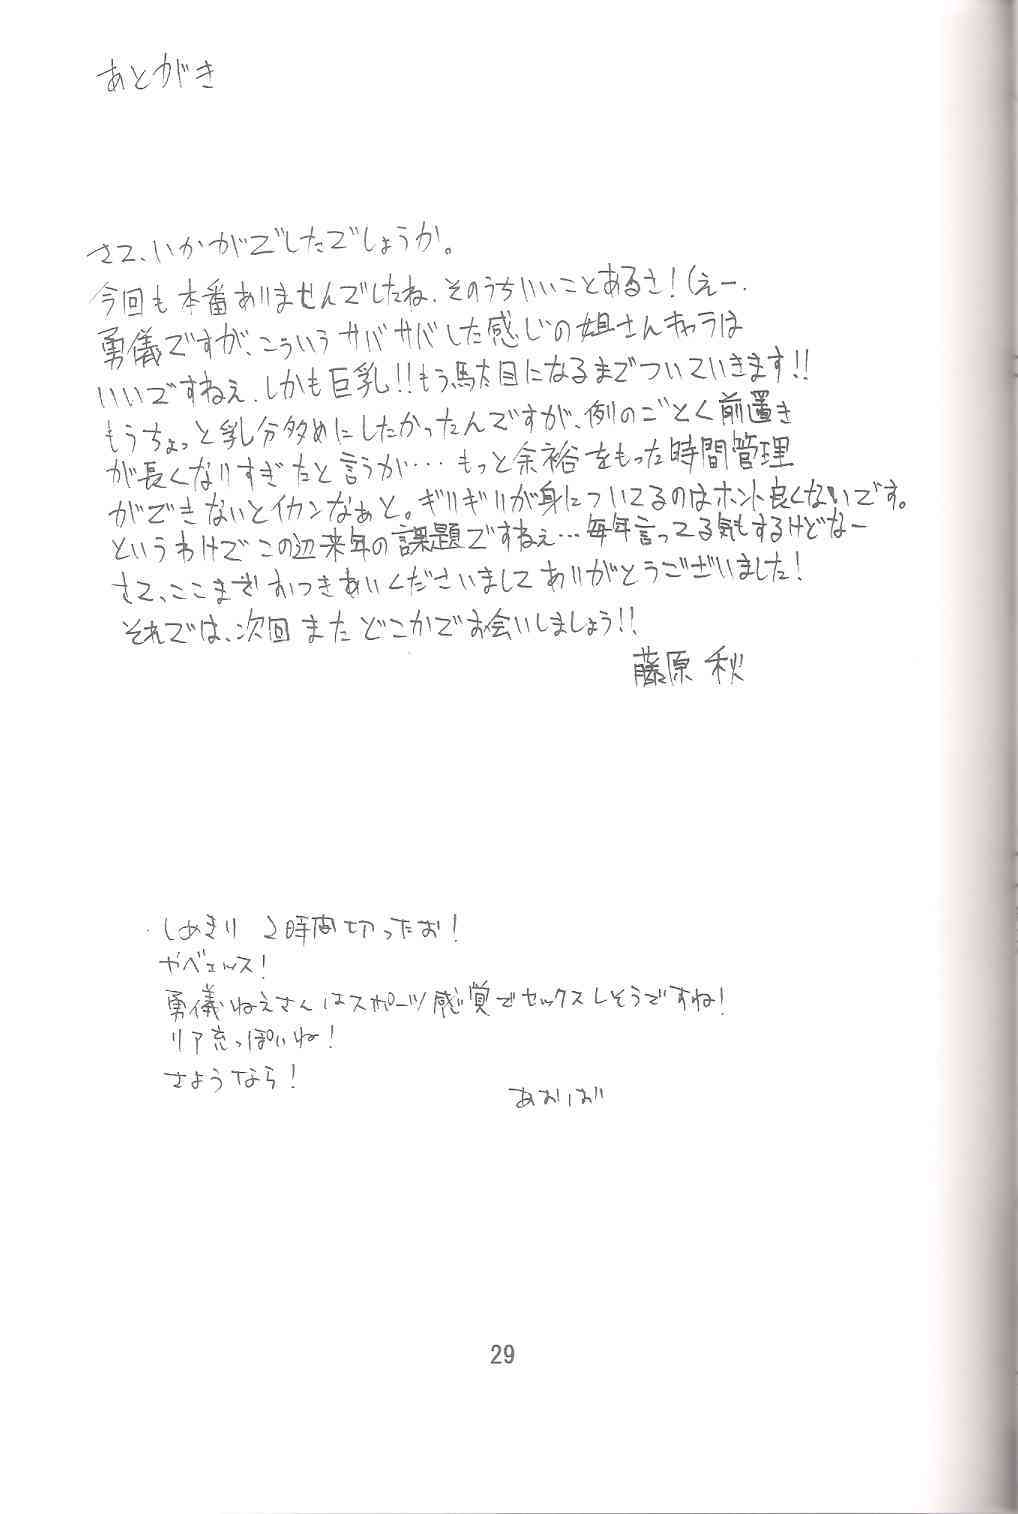 あとがき
さて、いかがでしたでしょうか。
今回も本番ありませんでしたね、そのうちいいことあるさ!(えー
勇儀ですが、こういうサバサバした感じの姐さんキャラは
いいですねぇ、しかも巨乳!!もう駄目になるまでついていきます!!
もうちょっと乳分多めにしたかったんですが、例のごとく前置き
が長くなりすぎたと言うか…もっと余裕をもった時間管理
ができないとイカンなぁと。ギリギリが身についてるのはホント良くないです。
というわけでこの辺来年の課題ですねぇ…毎年言ってる気もするけどなー
さて、ここまでおつきあいくださいましてありがとうございました!
それでは、次回またどこかでお会いしましょう!!
藤原 秋
しめきり 2時間切ったお!
やべェッス!
勇儀ねえさんはスポーツ感覚でセックスしそうですね!
リア充っぽいね!
さようなら!
あおば
29